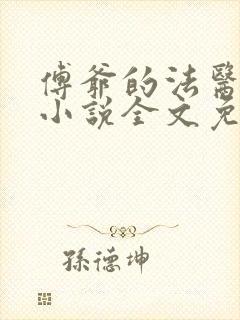 傅爺的法醫
小說全文免
孫德坤